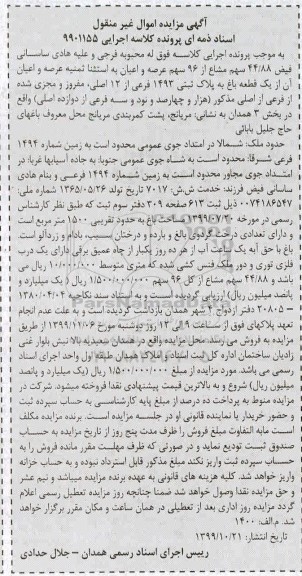 آگهی مزایده اموال غیر منقول
اسناد ذمه ای پرونده کلاسه اجرایی ۹۹۰۱۱۵۵
به موجب پرونده اجرایی کلاسه فوق له محبوبه فرجی و علیه هادی ساسانی
فیض ۴۴/۸۸ سهم مشاع از ۹۶ سهم عرصه و اعیان به استثنا ثمنیه عرصه و اعیان
آن از یک قطعه باغ به پلاک ثبتی ۱۴۹۳ فرعی از ۱۲ اصلی، مفروز و مجزی شده
از فرعی از اصلی مذکور (هزار و چهارصد و نود و سه فرعی از دوازده اصلی) واقع
در بخش ۳ همدان به نشانی: مریانج، پشت کمربندی مریانج محل معروف باغهای
حاج جلیل بابائی
حدود ملک: شمالا در امتداد جوی عمومی محدود است به زمین شماره ۱۴۹۴
فرعی شرقا: محدود است به شاه جوی عمومی جنوبا: به جاده آسیابها غربا: در
امتداد جوی مجاور محدود است به زمین شماره ۱۴۹۴ فرعی و بنام هادی
ساسانی فیض فرزند: خدمت ش.ش: ۷۰۱۷ تاریخ تولد ۱۳۶۵/۰۵/۲۶ شماره ملی:
۰۰۷۴۱۸۶۵۴۷ ذیل ثبت ۶۱۳ صفحه ۳۰۹ دفتر سوم ثبت که طبق نظر کارشناس
رسمی در مورخه ۱۳۹۹/۰۷/۲۰ مساحت باغ به حدود تقریبی ۱۵۰۰ متر مربع است
و دارای تعدادی درخت گردوی بالغ و بارده و درختان سیب، بادام و زردآلو است.
باغ با حق آبه یک ساعت آب از هر ده روز یکبار از چاه عمیق برقی دارای یک درب
فلزی توری و دور ملک فنس کشی شده که متری متوسط ۱۰/۰۰۰/۰۰۰ ریال می
باشد و ۴۴/۸۸ سهم مشاع از کل ۹۶ سهم ۱/۵۰۰/۰۰۰/۰۰۰ ریال ( یک میلیارد و
پانصد میلیون ریال) ارزیابی گردیده است و به استناد سند نکاحیه ۱۳۸۰/۰۴/۰۴
– ۲۰۸۰۵ دفتر ازدواج ۴ شهر همدان بازداشت گردیده است و به علت عدم انجام
تعهد پلاکهای فوق از ساعت ۹ الی ۱۲ روز دوشنبه مورخ ۱۳۹۹/۱۱/۰۶ از طریق
مزایده به فروش می رسند. محل مزایده واقع در همدان سعیدیه بالا نبش بلوار غنی
زادیان ساختمان اداره کل ثبت اسناد و املاک همدان طبقه اول واحد اجرای اسناد
رسمی می باشد. مورد مزایده از مبلغ ۱/۵۰۰/۰۰۰/۰۰۰ ریال (یک میلیارد و پانصد
میلیون ریال) شروع و به بالاترین قیمت پیشنهادی نقدا فروخته میشود. شرکت در
مزایده منوط به پرداخت ده درصد از مبلغ پایه کارشناسی به حساب سپرده ثبت
و حضور خریدار یا نماینده قانونی او در جلسه مزایده است. برنده مزایده مکلف
است مابه التفاوت مبلغ فروش را ظرف مدت پنج روز از تاریخ مزایده به حساب
صندوق ثبت تودیع نماید و در صورتی که ظرف مهلت مقرر مانده فروش را به
حساب سپرده ثبت واریز نکند مبلغ مذکور قابل استرداد نبوده و به حساب خزانه
واریز خواهد شد. کلیه هزینه های قانونی به عهده برنده مزایده میباشد و نیم عشر
و حق مزایده نقدا وصول خواهد شد ضمنا چنانچه روز مزایده تعطیل رسمی اعلام
گردد مزایده روز اداری بعد از تعطیلی در همان ساعت و مکان مقرر برگزار خواهد
شد. م.الف: ۱۴۰۰
تاریخ انتشار: ۱۳۹۹/۱۰/۲۱
رییس اجرای اسناد رسمی همدان - جلال حدادی